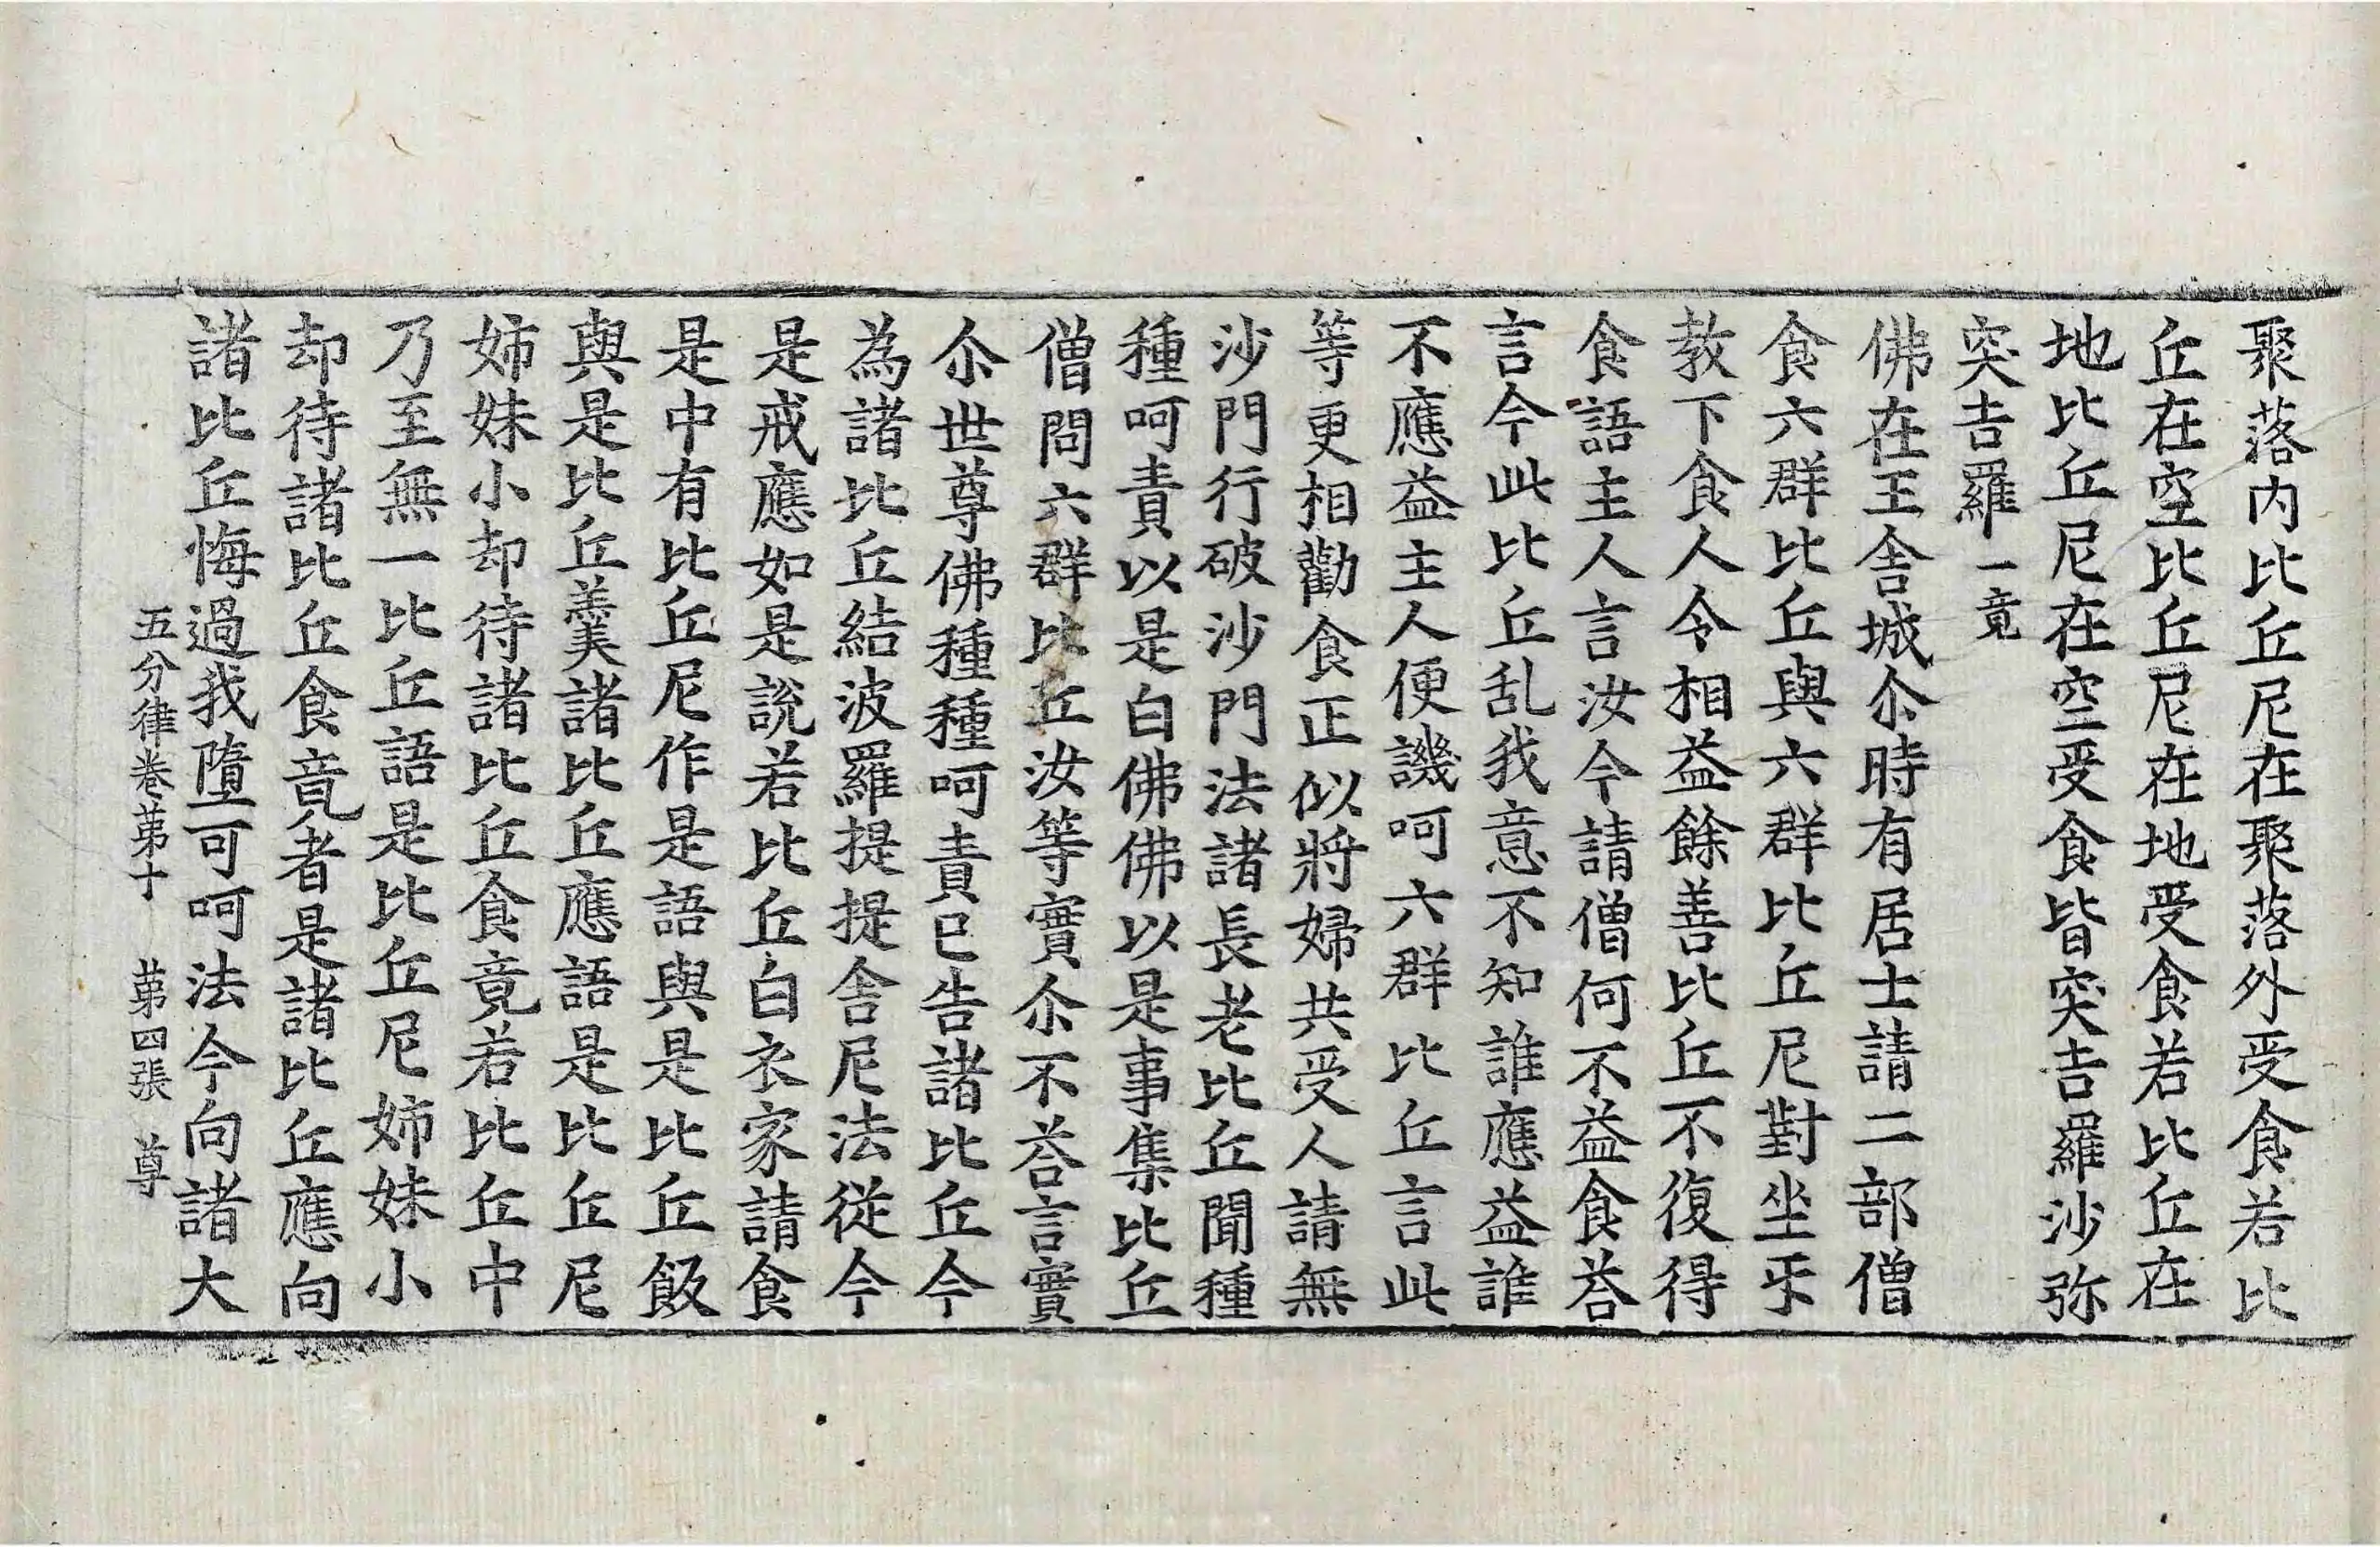 聚落内比丘尼在聚落外受食若比
丘在空比丘尼在地受食若比丘在
地比丘尼在空受食皆突吉羅沙弥
突吉羅一竟
佛在王舍城尒時有居士請二部僧
食六群比丘與六群比丘尼對坐㸦
教下食人令相益餘善比丘不復得
食語主人言汝今請僧何不益食荅
言今此比丘乱我意不知誰應益誰
不應益主人便譏呵六群比丘言此
等更相勸食正似將婦共受人請無
沙門行破沙門法諸長老比丘聞種
種呵責以是白佛佛以是事集比丘
僧問六群比丘汝等實尒不荅言實
尒世尊佛種種呵責已告諸比丘今
為諸比丘結波羅提提舍尼法從今
是戒應如是說若比丘白衣家請食
是中有比丘尼作是語與是比丘飯
與是比丘羹諸比丘應語是比丘尼
姉妹小却待諸比丘食竟若比丘中
乃至無一比丘語是比丘尼姉妹小
却待諸比丘食竟者是諸比丘應向
諸比丘悔過我墮可呵法今向諸大
五分律卷苐十 苐四張 尊